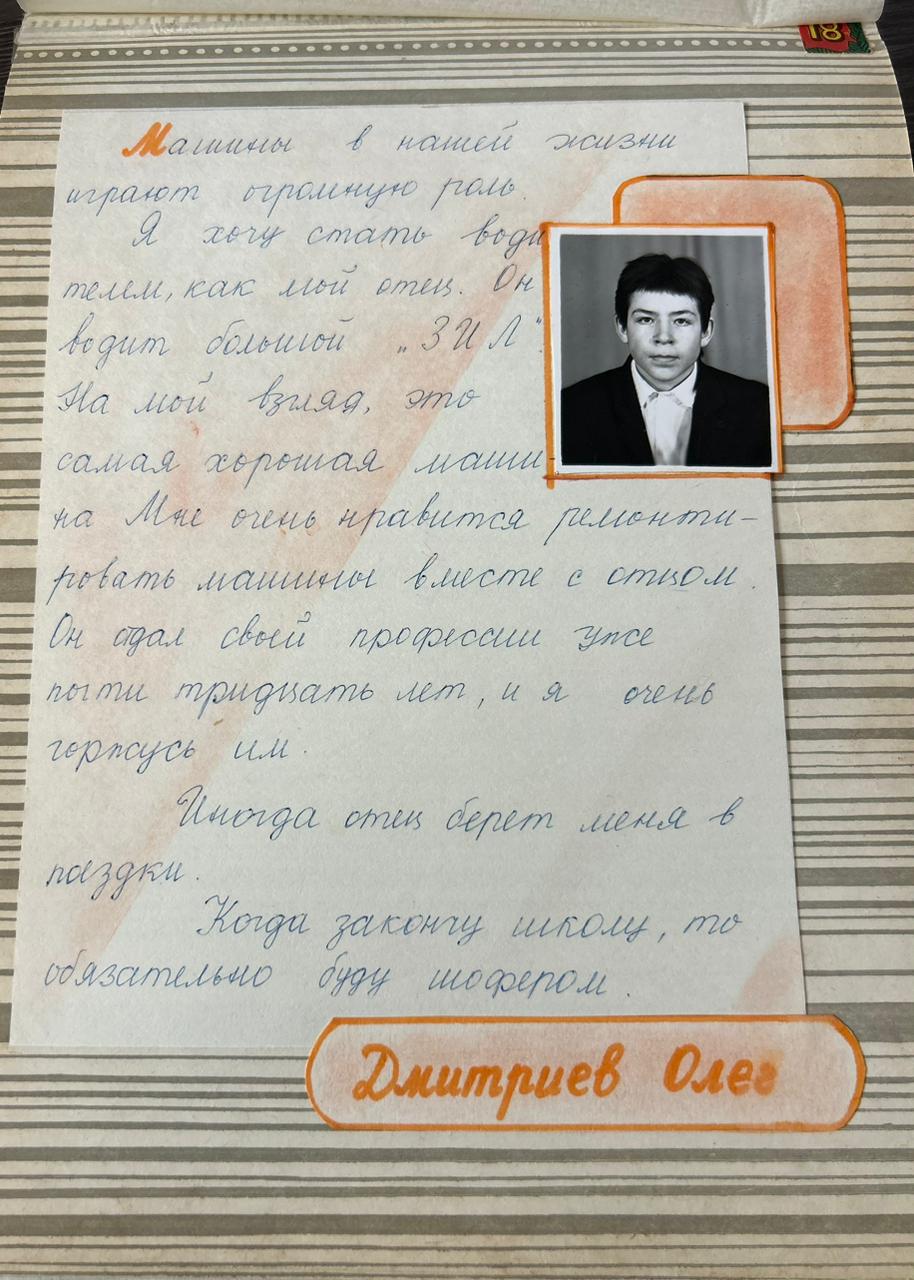 18
Машины в нашей жизни
играют огромную роль.
Я хочу стать води
телем, как мой отец. Он
водит большой „ЗИЛ".
На мой взгляд, это
самая хорошая маши-
на Мне очень нравится ремонти-
ровать машины вместе с отцом.
Он отдал своей профессии уже
почти тридцать лет, и я очень
горжусь им.
Иногда отец берет меня в
поездки.
Когда закончу школу, то
обязательно буду шофером.
Дмитриев Олег